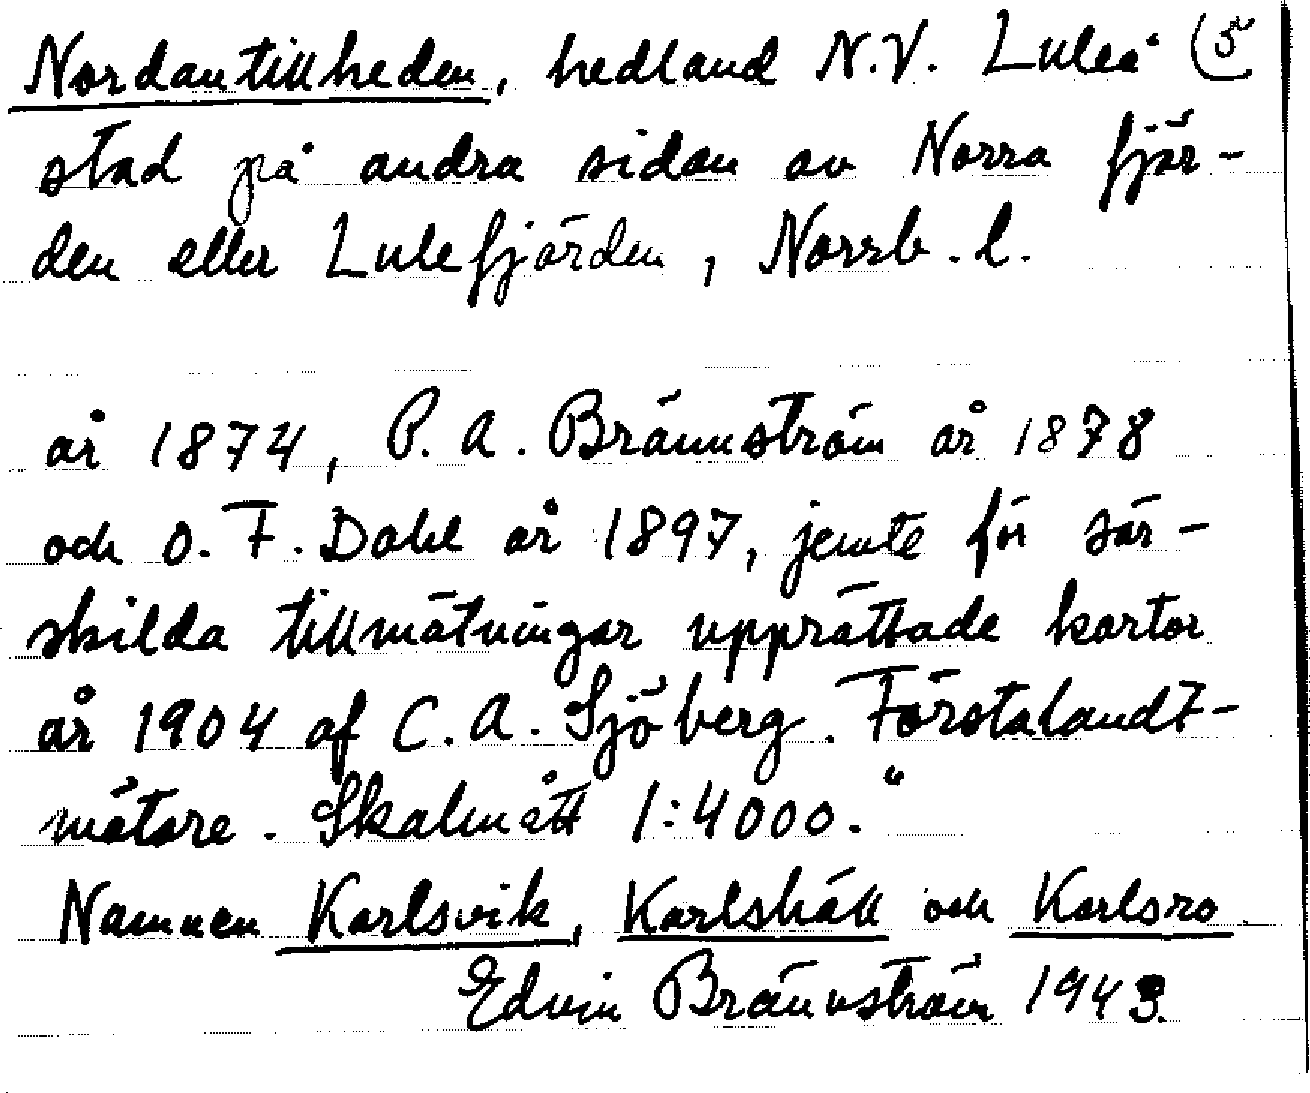 Nordantillheden, hedland N.V. Luleå (5
stad på andra sidan av Norra fjär-
den eller Lulefjärden, Norrb. l.
år 1874, P. A. Brännström år 1878
och O. F. Dahl år 1897, jemte för sär-
skilda tillmätningar upprättade kartor
år 1904 af C. A. Sjöberg. Förstelandt-
mätare. Skalmått 1:4000."
Namnen Karlsvik, Karlshäll och Karlsro
Edvin Brännström 1943.